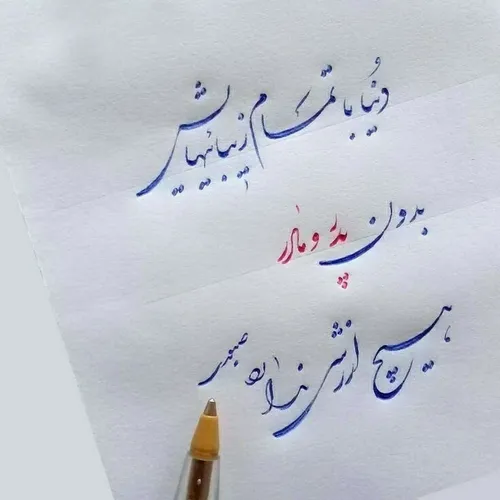 دنیا با تمام زیبائیهایش
بدون پدر و مادر
هیچ ارزشی ندارد